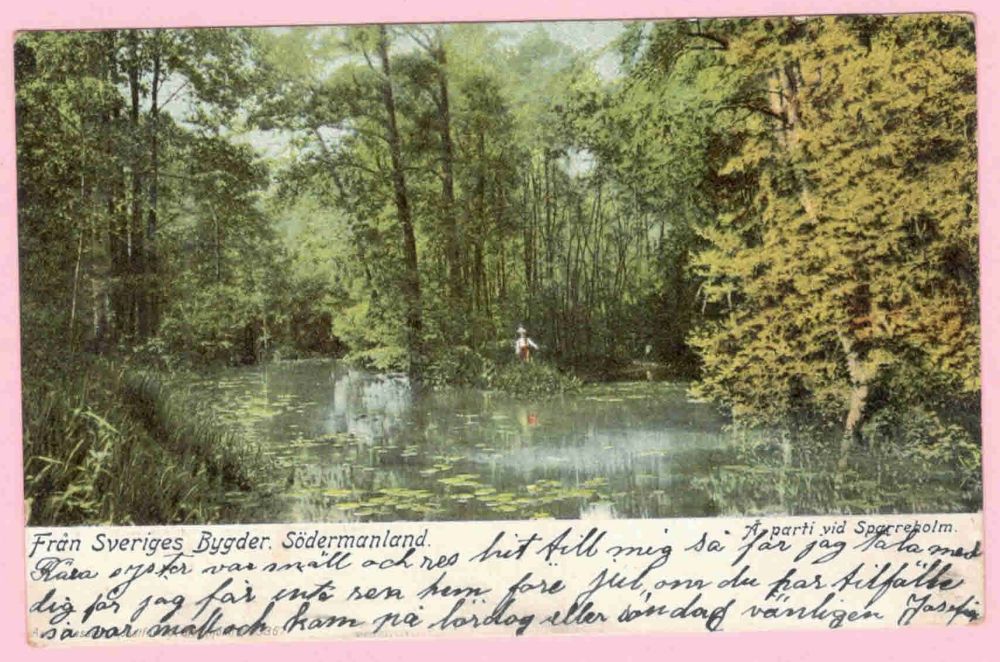 Från Sveriges Bygder. Södermanland.
Å-parti vid Sparreholm.
Kära syster var snäll och res hit till mig så får jag tala med
dig för jag får inte ren hem före jul, om du har tilfälle
så var snäll och kam på lördag eller söndag vänligen Josefin